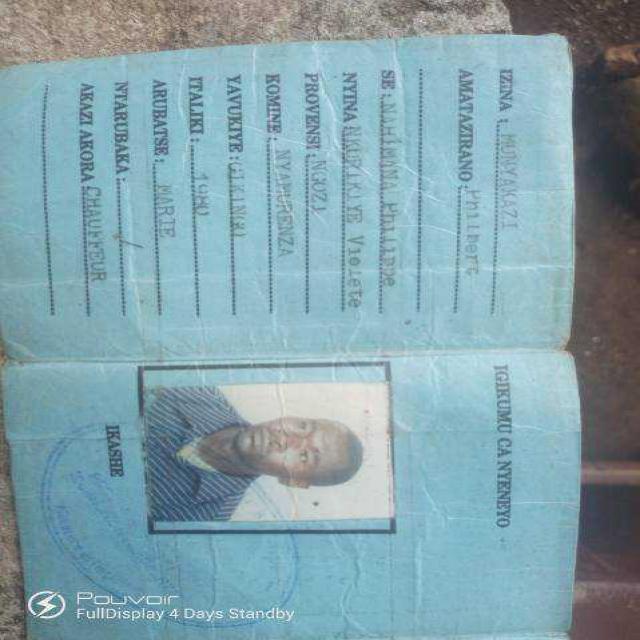 IZINA : MUNYANGZI
AMATAZIRANO : Philbert
SE : Philippe
NYINA : Violete
PROVENSI : NGOZI
KOMINE : NYAMURENZA
YAVUKIYE :
ITALIKI : 1980
ARUBATSE : MARIE
NYARUBAKA :
AKAZI AKORA : CHAUFFEUR
IGIKUMU CA NYENEYO
IKASHE
Pouvoir
FullDisplay 4 Days Standby